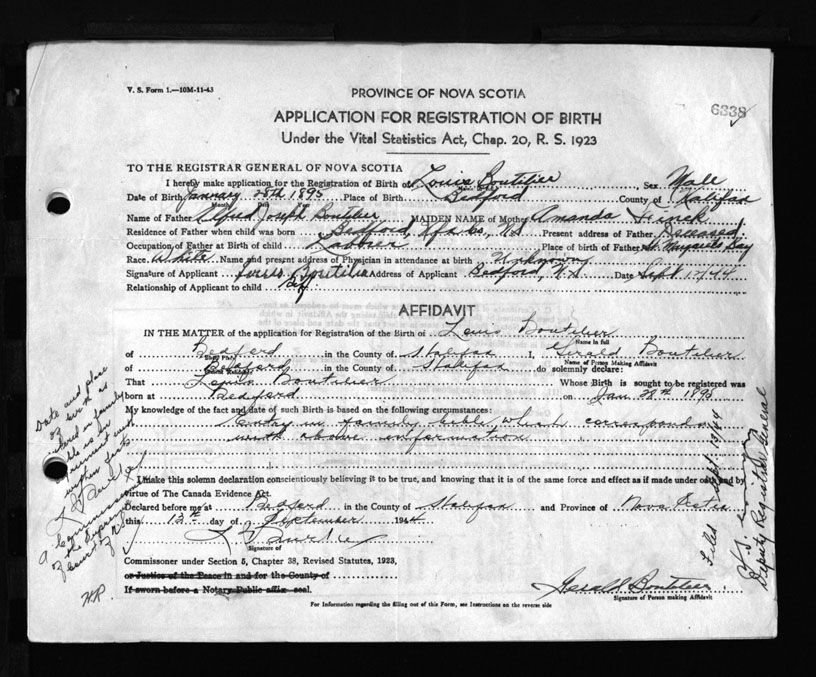 V. S. Form 1.—10M-11-43
PROVINCE OF NOVA SCOTIA
6338
APPLICATION FOR REGISTRATION OF BIRTH
Under the Vital Statistics Act, Chap. 20, R. S. 1923
TO THE REGISTRAR GENERAL OF NOVA SCOTIA
I hereby make application for the Registration of Birth of Louis Boutilier Sex Male
Date of Birth January 28th 1895 Place of Birth Bedford County of Halifax
Name of Father Joseph Boutilier MAIDEN NAME of Mother Amanda
Residence of Father when child was born Bedford, Hfx Co, N.S Present address of Father Deceased
Occupation of Father at Birth of child Labourer Place of birth of Father St. Margarets Bay
Race White Name and present address of Physician in attendance at birth Unknown
Signature of Applicant Louis Boutilier Address of Applicant Bedford, N.S. Date Sept 12/44
Relationship of Applicant to child
AFFIDAVIT
IN THE MATTER of the application for Registration of the Birth of Louis Boutilier
Name in full
of Bedford in the County of Halifax I, Gerald Boutilier
Name of Person Making Affidavit
of Bedford in the County of Halifax do solemnly declare:
That Louis Boutilier Whose Birth is sought to be registered was
born at Bedford on Jan 28th 1895
My knowledge of the fact and date of such Birth is based on the following circumstances:
Entry in family bible which corresponds
with above information
I make this solemn declaration conscientiously believing it to be true, and knowing that it is of the same force and effect as if made under oath and by
virtue of The Canada Evidence Act.
Declared before me at Bedford in the County of Halifax and Province of Nova Scotia
this 13th day of September 1944
Signature of
Commissioner under Section 5, Chapter 38, Revised Statutes, 1923,
or Justice of the Peace in and for the County of
If sworn before a Notary Public affix seal.
Gerald Boutilier
Signature of Person making Affidavit
For Information regarding the filling out of this Form, see Instructions on the reverse side
Date and place
of birth as
in family
bible is in
agreement with
written facts
A Commissioner
of the Supreme
Court of N.S.
Filed Sept. 13/44
Deputy Registrar General